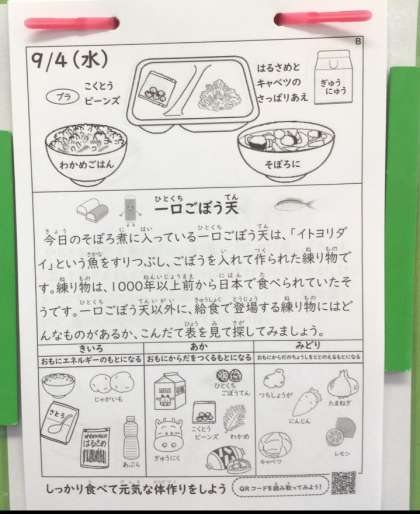 B
9/4(水)
プラ
こくとう
ビーンズ
はるさめと
キャベツの
さっぱりあえ
ぎゅう
にゅう
わかめごはん
そぼろに
ひとくち てん
一口ごぼう天
きょう に はい ひとくち てん
今日のそぼろ煮に入っている一口ごぼう天は、「イトヨリダ
さかな い つく ね もの
イ」という魚をすりつぶし、ごぼうを入れて作られた練り物で
ね もの ねんいじょうまえ にほん た
す。練り物は、1000年以上前から日本で食べられていたそ
ひとくち てんいがい きゅうしょく とうじょう ね もの
うです。一口ごぼう天以外に、給食で登場する練り物にはど
ひょう み さが
んなものがあるか、こんだて表を見て探してみましょう。
きいろ
おもにエネルギーのもとになる
あか
おもにからだをつくるもとになる
みどり
おもにからだのちょうしをととのえるもとになる
じゃがいも
さとう
はるさめ
あぶら
ひとくち
ごぼうてん
こくとう
ビーンズ
わかめ
ぎゅうにく
つちしょうが
たまねぎ
にんじん
キャベツ
レモン
しっかり食べて元気な体作りをしよう
QRコードを読み取ってみよう!